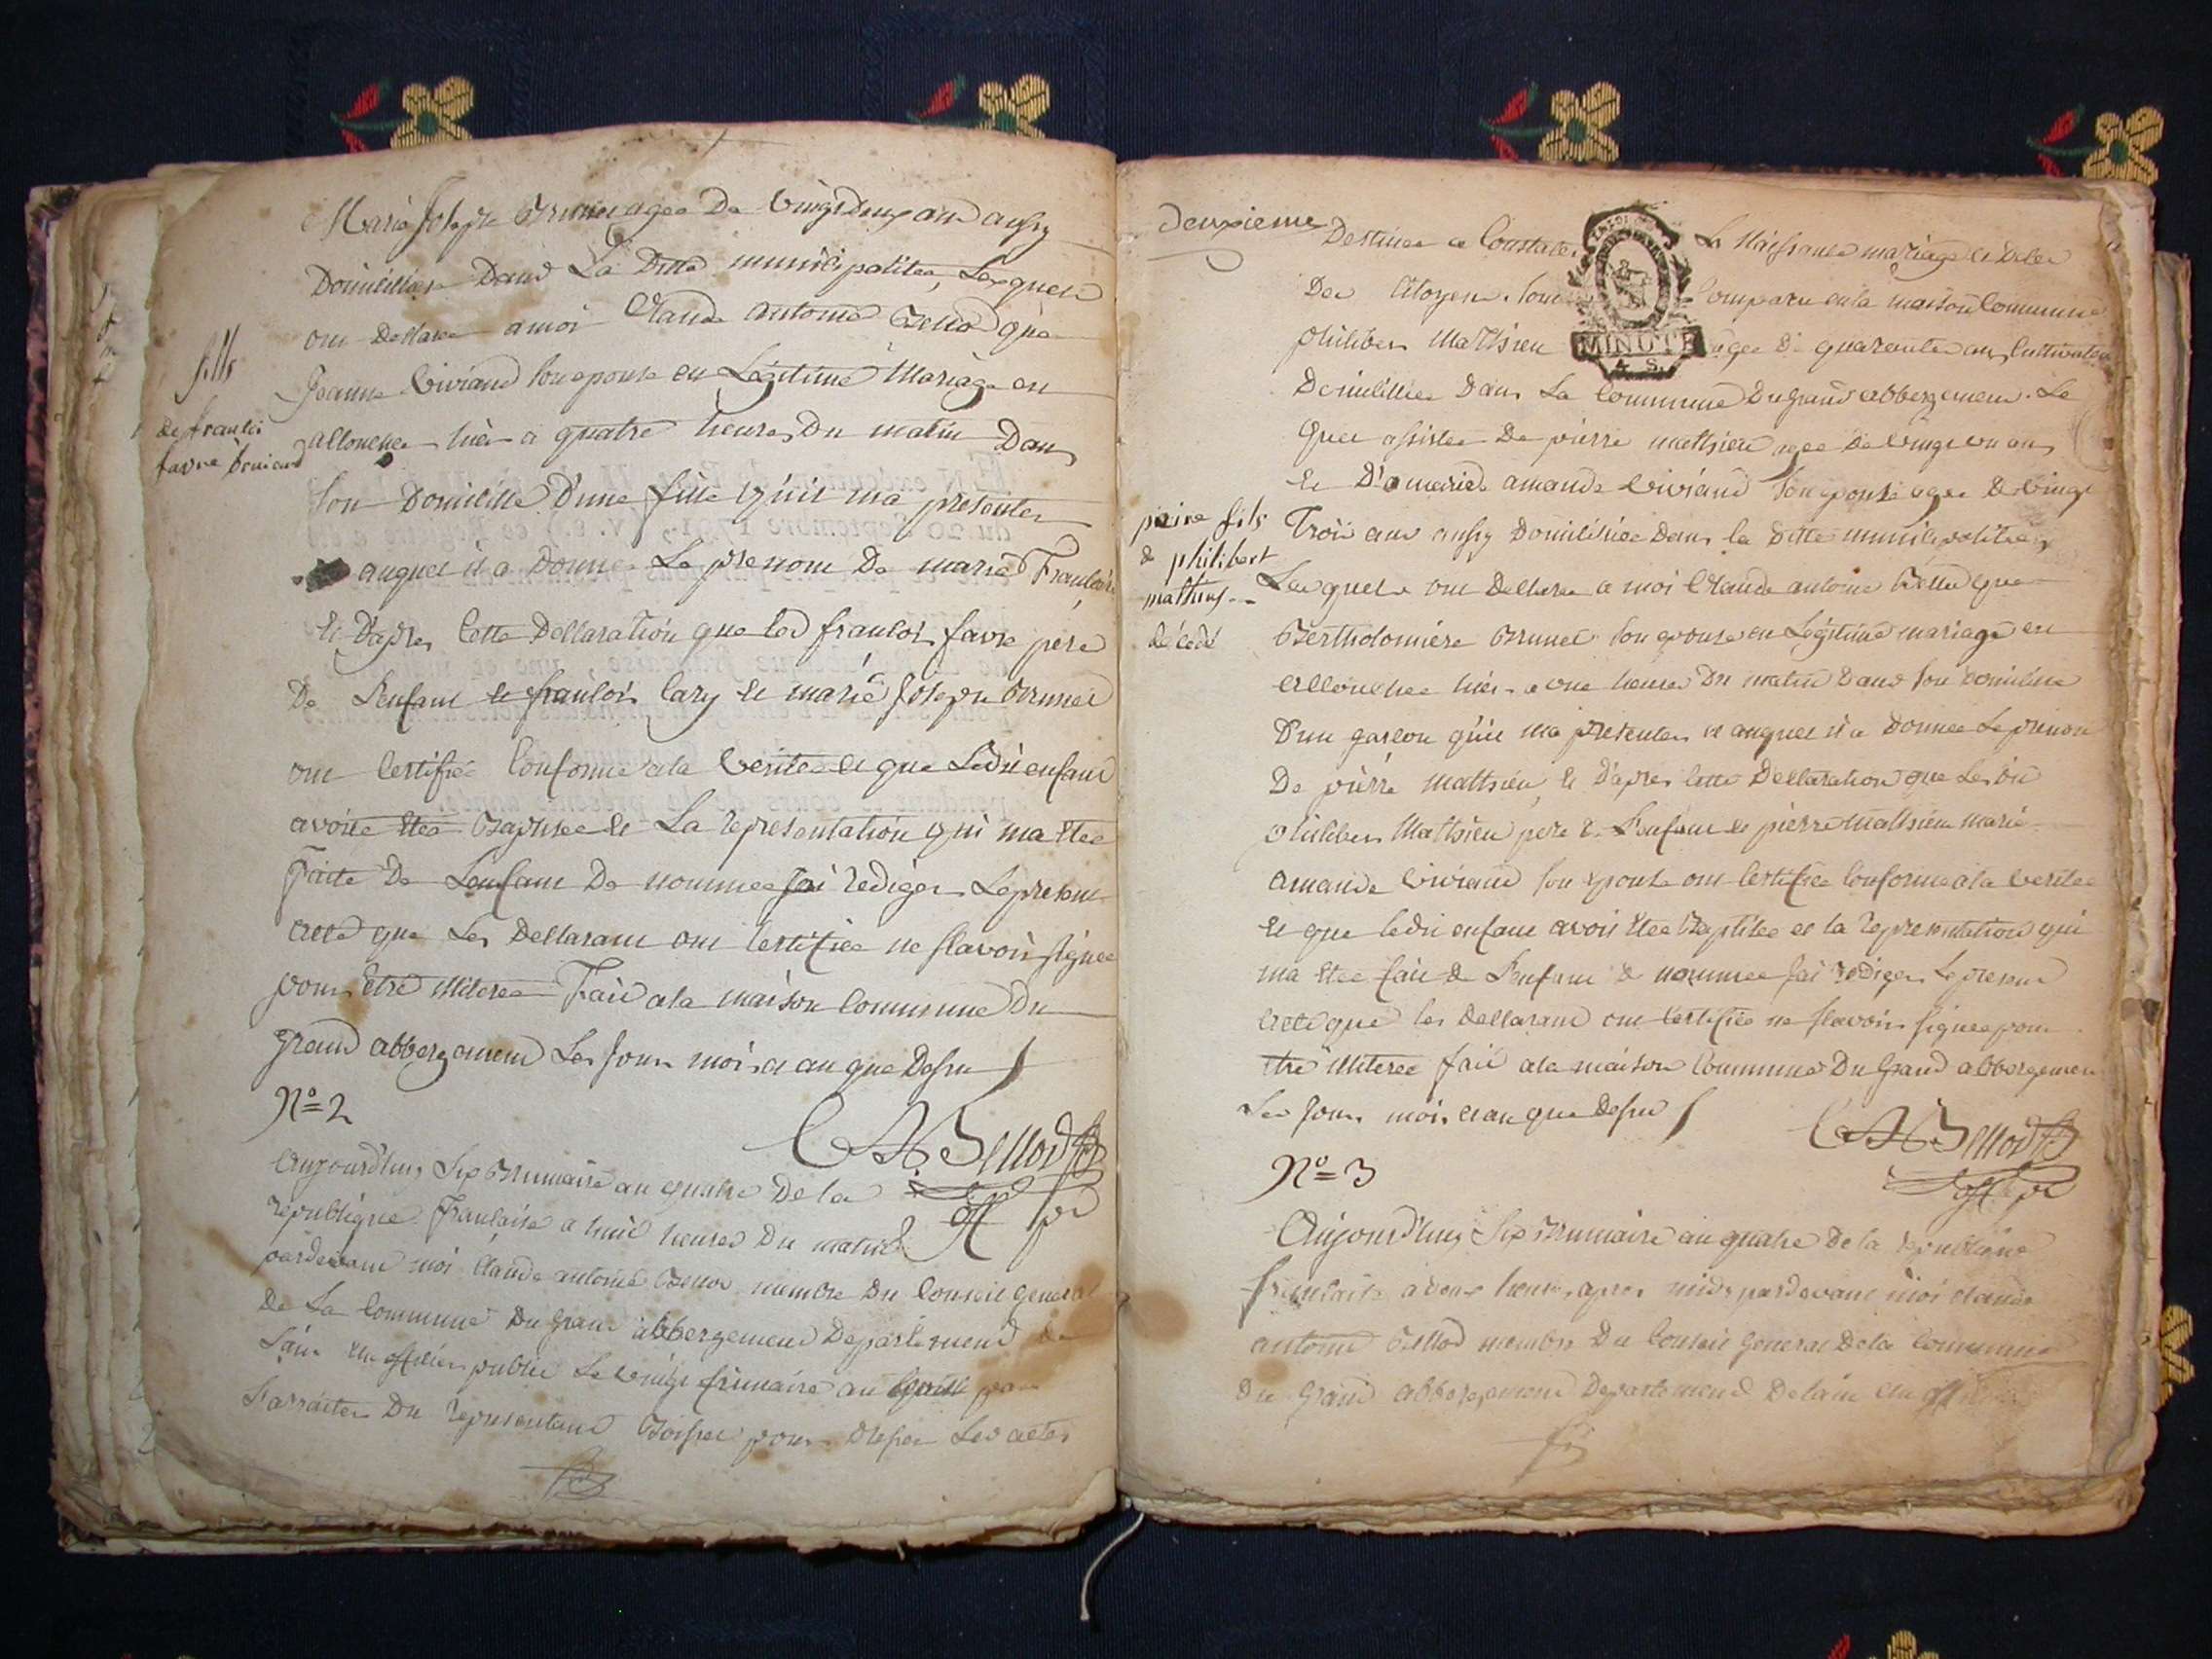 Marie Josepte Brunet agee De vingt deux ans aussy
Domicilliee Dans La Ditte municipalitee, Lesquels
ont Dellaree a moi Claude antoine Bellod que
Jeanne Viviand son epouse en Legitime Mariage en
allouchee hier a quatre heures Du matin Dans
son Domicille D'une fille qu'il ma presenter
auquel il a Donner Le prenom De marie Francloise
et D'apres cette Dellaration que led francois favre pere
De L'enfant et francois Cary et marie Josepte Brunet
ont Certifiée Conforme ala Veritee et que Ledit enfant
avoit etee Baptisee et La representation qui ma etee
Faite De Lenfant De nommee Jai rediger Le present
acte que Les Dellarant ont Certifiee ne Savoir signee
pour être Illeteree Fait ala maison Commune Du
grand abbergement Les Jours mois et an que Dessu
fille
de francoi
favre
No=2
C A Bellod
off p
Aujourd'huy Six Brumaire an quatre De la
republique Francaise a huit heures Du matin
pardevant moi Claude antoine Bellod membre Du Conseil general
De La Commune Du Grand abbergement Departement De
Lain elu officier public Le vingt frimaire an par
Larraiter Du representant Boisset pour Dresser Les actes
Deuxieme
Destinee a Constater La Naissance mariage et Deces
Des Citoyens. sont Comparu en la maison Commune
philibert Matthieu agee De quarante ans Cultivateur
Domicilliee Dans La Commune Du grand abbergement. Le
quel assistee De pierre matthieu agee De vingt un ans
et D'a marie amande Viviand son epouse agee De vingt
Trois ans aussy Domiciliee Dans la Ditte municipalitee,
Lesquels ont Dellaree a moi Claude antoine Bellod que
Bertholomiere Brunet son epouse en Legitime mariage en
allouchee hier a une heure Du matin Dans son Domicille
D'un garson qu'il ma presenter et auquel il a Donnee Le prenom
De pierre Matthieu, et D'apres cette Dellaration que Led
philibert Matthieu pere De L'enfant et pierre Matthieu marie
Amande Viviand son epouse ont Certifiee Conforme ala Veritee
et que ledit enfant avoit etee Baptisee et la representation qui
ma etee fait de L'enfant De nommee Jai rediger Le present
acte que les Dellarant ont Certifiee ne Savoir signee pour
etre Illeteree fait ala maison Commune Du Grand abbergement
Les Jours mois et an que Dessu
pierre fils
de philibert
mathieu
décédé
MINUTE
C A Bellod
off p
No=3
Aujourd'huy Six Brumaire an quatre De la republique
francaise a deux heures apres midy pardevant moi claude
antoine Bellod membre Du Conseil general De la Commune
Du Grand abbergement Departement De lain elu officier